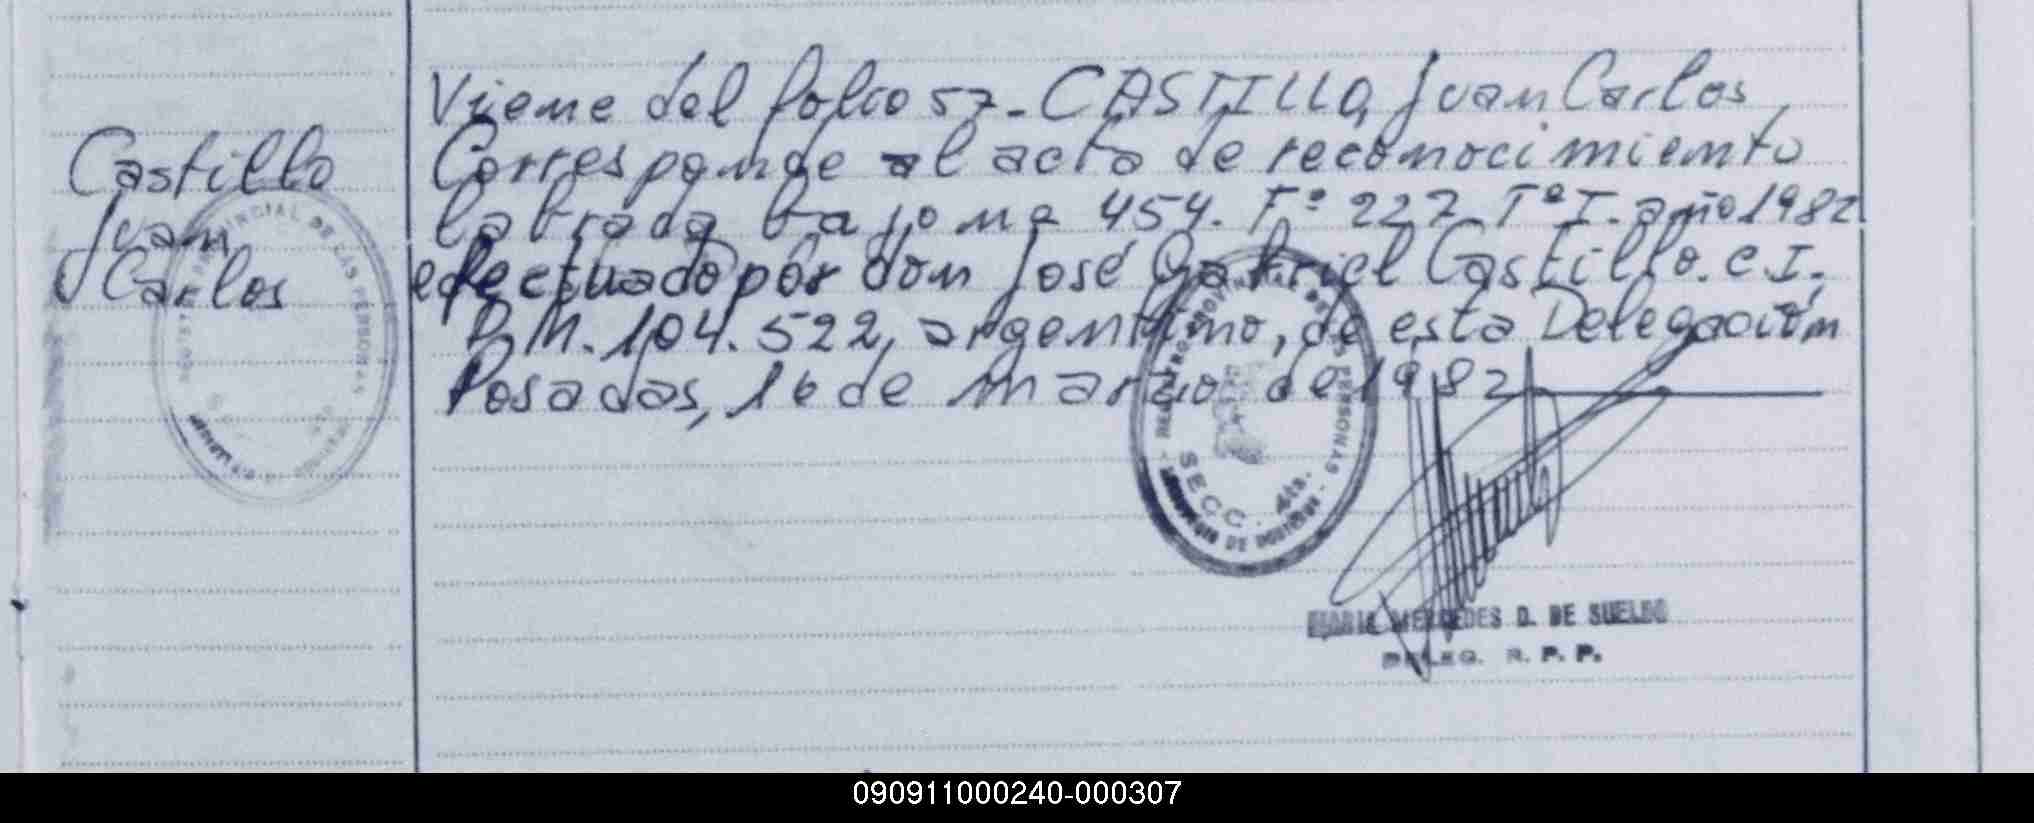 Viene del folio 57-CASTILLO, Juan Carlos
Corresponde al acta de reconocimiento
labrada bajo nº 454. Fº 227 Tº I. año 1982
efectuado por don José Gabriel Castillo. C.I.
P.M. 104.522, argentino, de esta Delegación
Posadas, 16 de marzo de 1982
Castillo
Juan
Carlos
PROVINCIAL DE LAS PERSONAS
REGISTRO PROVINCIAL DE LAS PERSONAS
SECC. 4ta.
DE
MARIA MERCEDES D. DE SUELDO
DELEG. R. P. P.
090911000240-000307